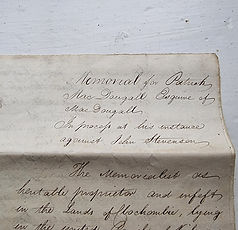 Memorial for Patrick
MacDougall Esquire of
MacDougall
In process at his instance
against John Stevenson
The Memorialist as
heritable proprietor and infeft
in the lands of Slockombie, lying
in the united